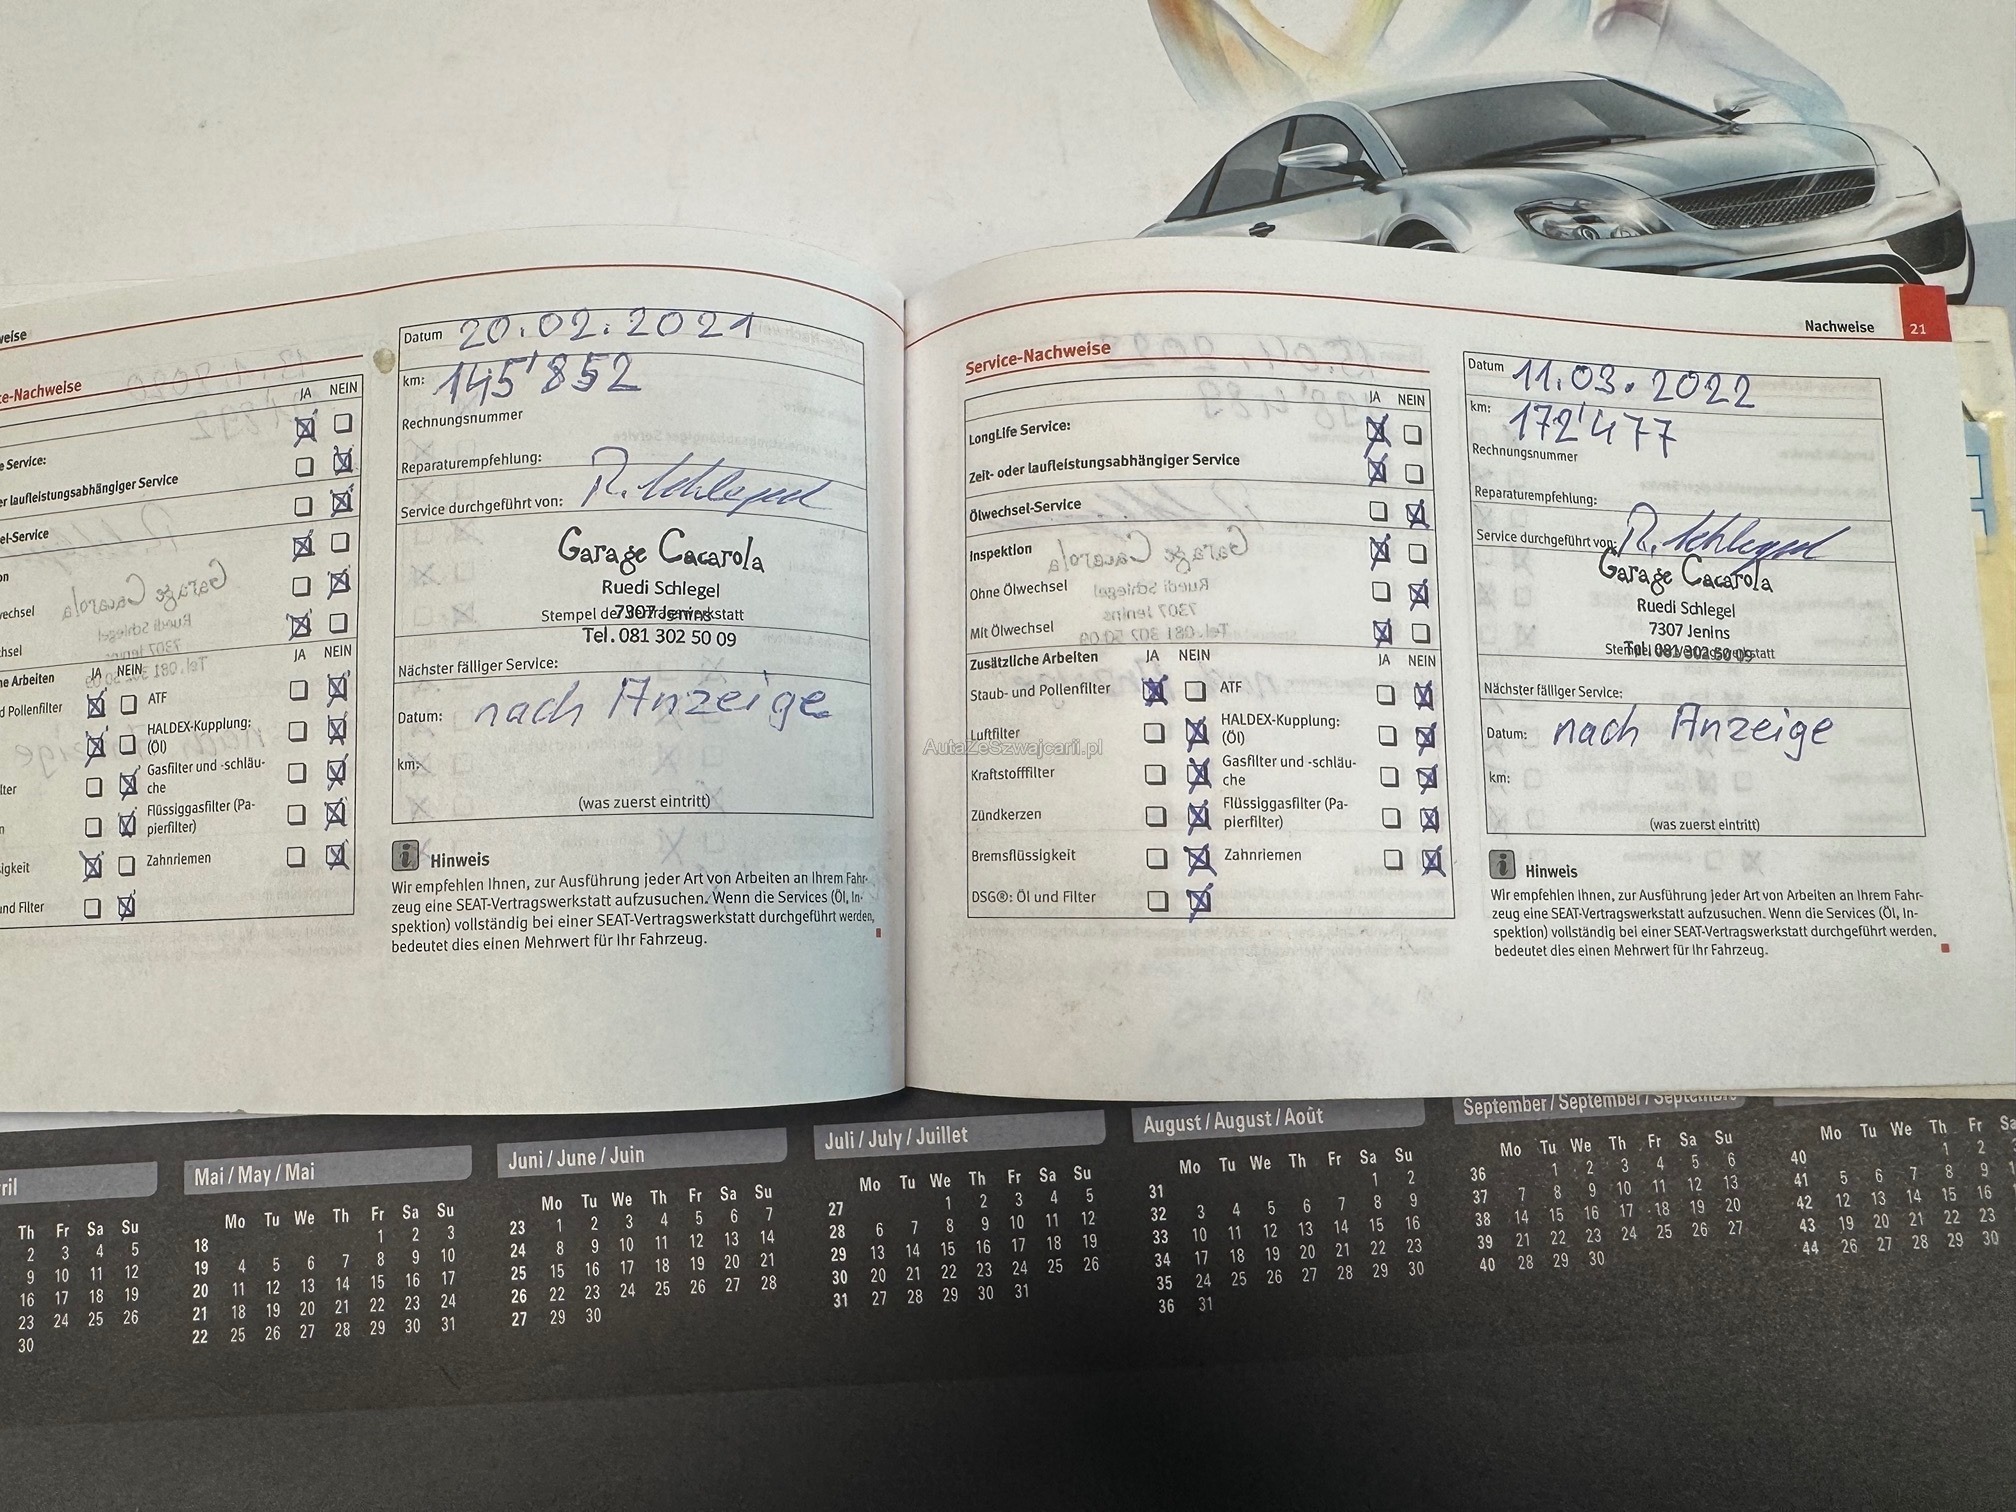 weise
e-Nachweise
JA NEIN
e Service:
er laufleistungsabhängiger Service
el-Service
on
wechsel
hsel
JA NEIN
ne Arbeiten JA NEIN
d Pollenfilter ATF
HALDEX-Kupplung:
(Öl)
lter Gasfilter und -schläu-
che
n Flüssiggasfilter (Pa-
pierfilter)
igkeit Zahnriemen
und Filter
Datum 20.02.2021
km: 145'852
Rechnungsnummer
Reparaturempfehlung:
Service durchgeführt von: R. Schlegel
Garage Cacarola
Ruedi Schlegel
7307 Jenins
Tel. 081 302 50 09
Nächster fälliger Service:
Datum: nach Anzeige
km:
(was zuerst eintritt)
i Hinweis
Wir empfehlen Ihnen, zur Ausführung jeder Art von Arbeiten an Ihrem Fahr-
zeug eine SEAT-Vertragswerkstatt aufzusuchen. Wenn die Services (Öl, In-
spektion) vollständig bei einer SEAT-Vertragswerkstatt durchgeführt werden,
bedeutet dies einen Mehrwert für Ihr Fahrzeug.
Nachweise 21
Service-Nachweise
JA NEIN
LongLife Service:
Zeit- oder laufleistungsabhängiger Service
Ölwechsel-Service
Inspektion
Ohne Ölwechsel
Mit Ölwechsel
Zusätzliche Arbeiten JA NEIN JA NEIN
Staub- und Pollenfilter ATF
Luftfilter HALDEX-Kupplung:
(Öl)
Kraftstofffilter Gasfilter und -schläu-
che
Zündkerzen Flüssiggasfilter (Pa-
pierfilter)
Bremsflüssigkeit Zahnriemen
DSG®: Öl und Filter
Datum 11.03.2022
km: 172'477
Rechnungsnummer
Reparaturempfehlung:
Service durchgeführt von: R. Schlegel
Garage Cacarola
Ruedi Schlegel
7307 Jenins
Tel. 081 302 50 09
Nächster fälliger Service:
Datum: nach Anzeige
km:
(was zuerst eintritt)
i Hinweis
Wir empfehlen Ihnen, zur Ausführung jeder Art von Arbeiten an Ihrem Fahr-
zeug eine SEAT-Vertragswerkstatt aufzusuchen. Wenn die Services (Öl, In-
spektion) vollständig bei einer SEAT-Vertragswerkstatt durchgeführt werden,
bedeutet dies einen Mehrwert für Ihr Fahrzeug.
AutaZeSzwajcarii.pl
ril
Th Fr Sa Su
2 3 4 5
9 10 11 12
16 17 18 19
23 24 25 26
30
Mai / May / Mai
Mo Tu We Th Fr Sa Su
18 1 2 3
19 4 5 6 7 8 9 10
20 11 12 13 14 15 16 17
21 18 19 20 21 22 23 24
22 25 26 27 28 29 30 31
Juni / June / Juin
Mo Tu We Th Fr Sa Su
23 1 2 3 4 5 6 7
24 8 9 10 11 12 13 14
25 15 16 17 18 19 20 21
26 22 23 24 25 26 27 28
27 29 30
Juli / July / Juillet
Mo Tu We Th Fr Sa Su
27 1 2 3 4 5
28 6 7 8 9 10 11 12
29 13 14 15 16 17 18 19
30 20 21 22 23 24 25 26
31 27 28 29 30 31
August / August / Août
Mo Tu We Th Fr Sa Su
31 1 2
32 3 4 5 6 7 8 9
33 10 11 12 13 14 15 16
34 17 18 19 20 21 22 23
35 24 25 26 27 28 29 30
36 31
September / September / Septembre
Mo Tu We Th Fr Sa Su
36 1 2 3 4 5 6
37 7 8 9 10 11 12 13
38 14 15 16 17 18 19 20
39 21 22 23 24 25 26 27
40 28 29 30
Mo Tu We Th Fr Sa
40 1 2
41 5 6 7 8 9
42 12 13 14 15 16
43 19 20 21 22 23
44 26 27 28 29 30